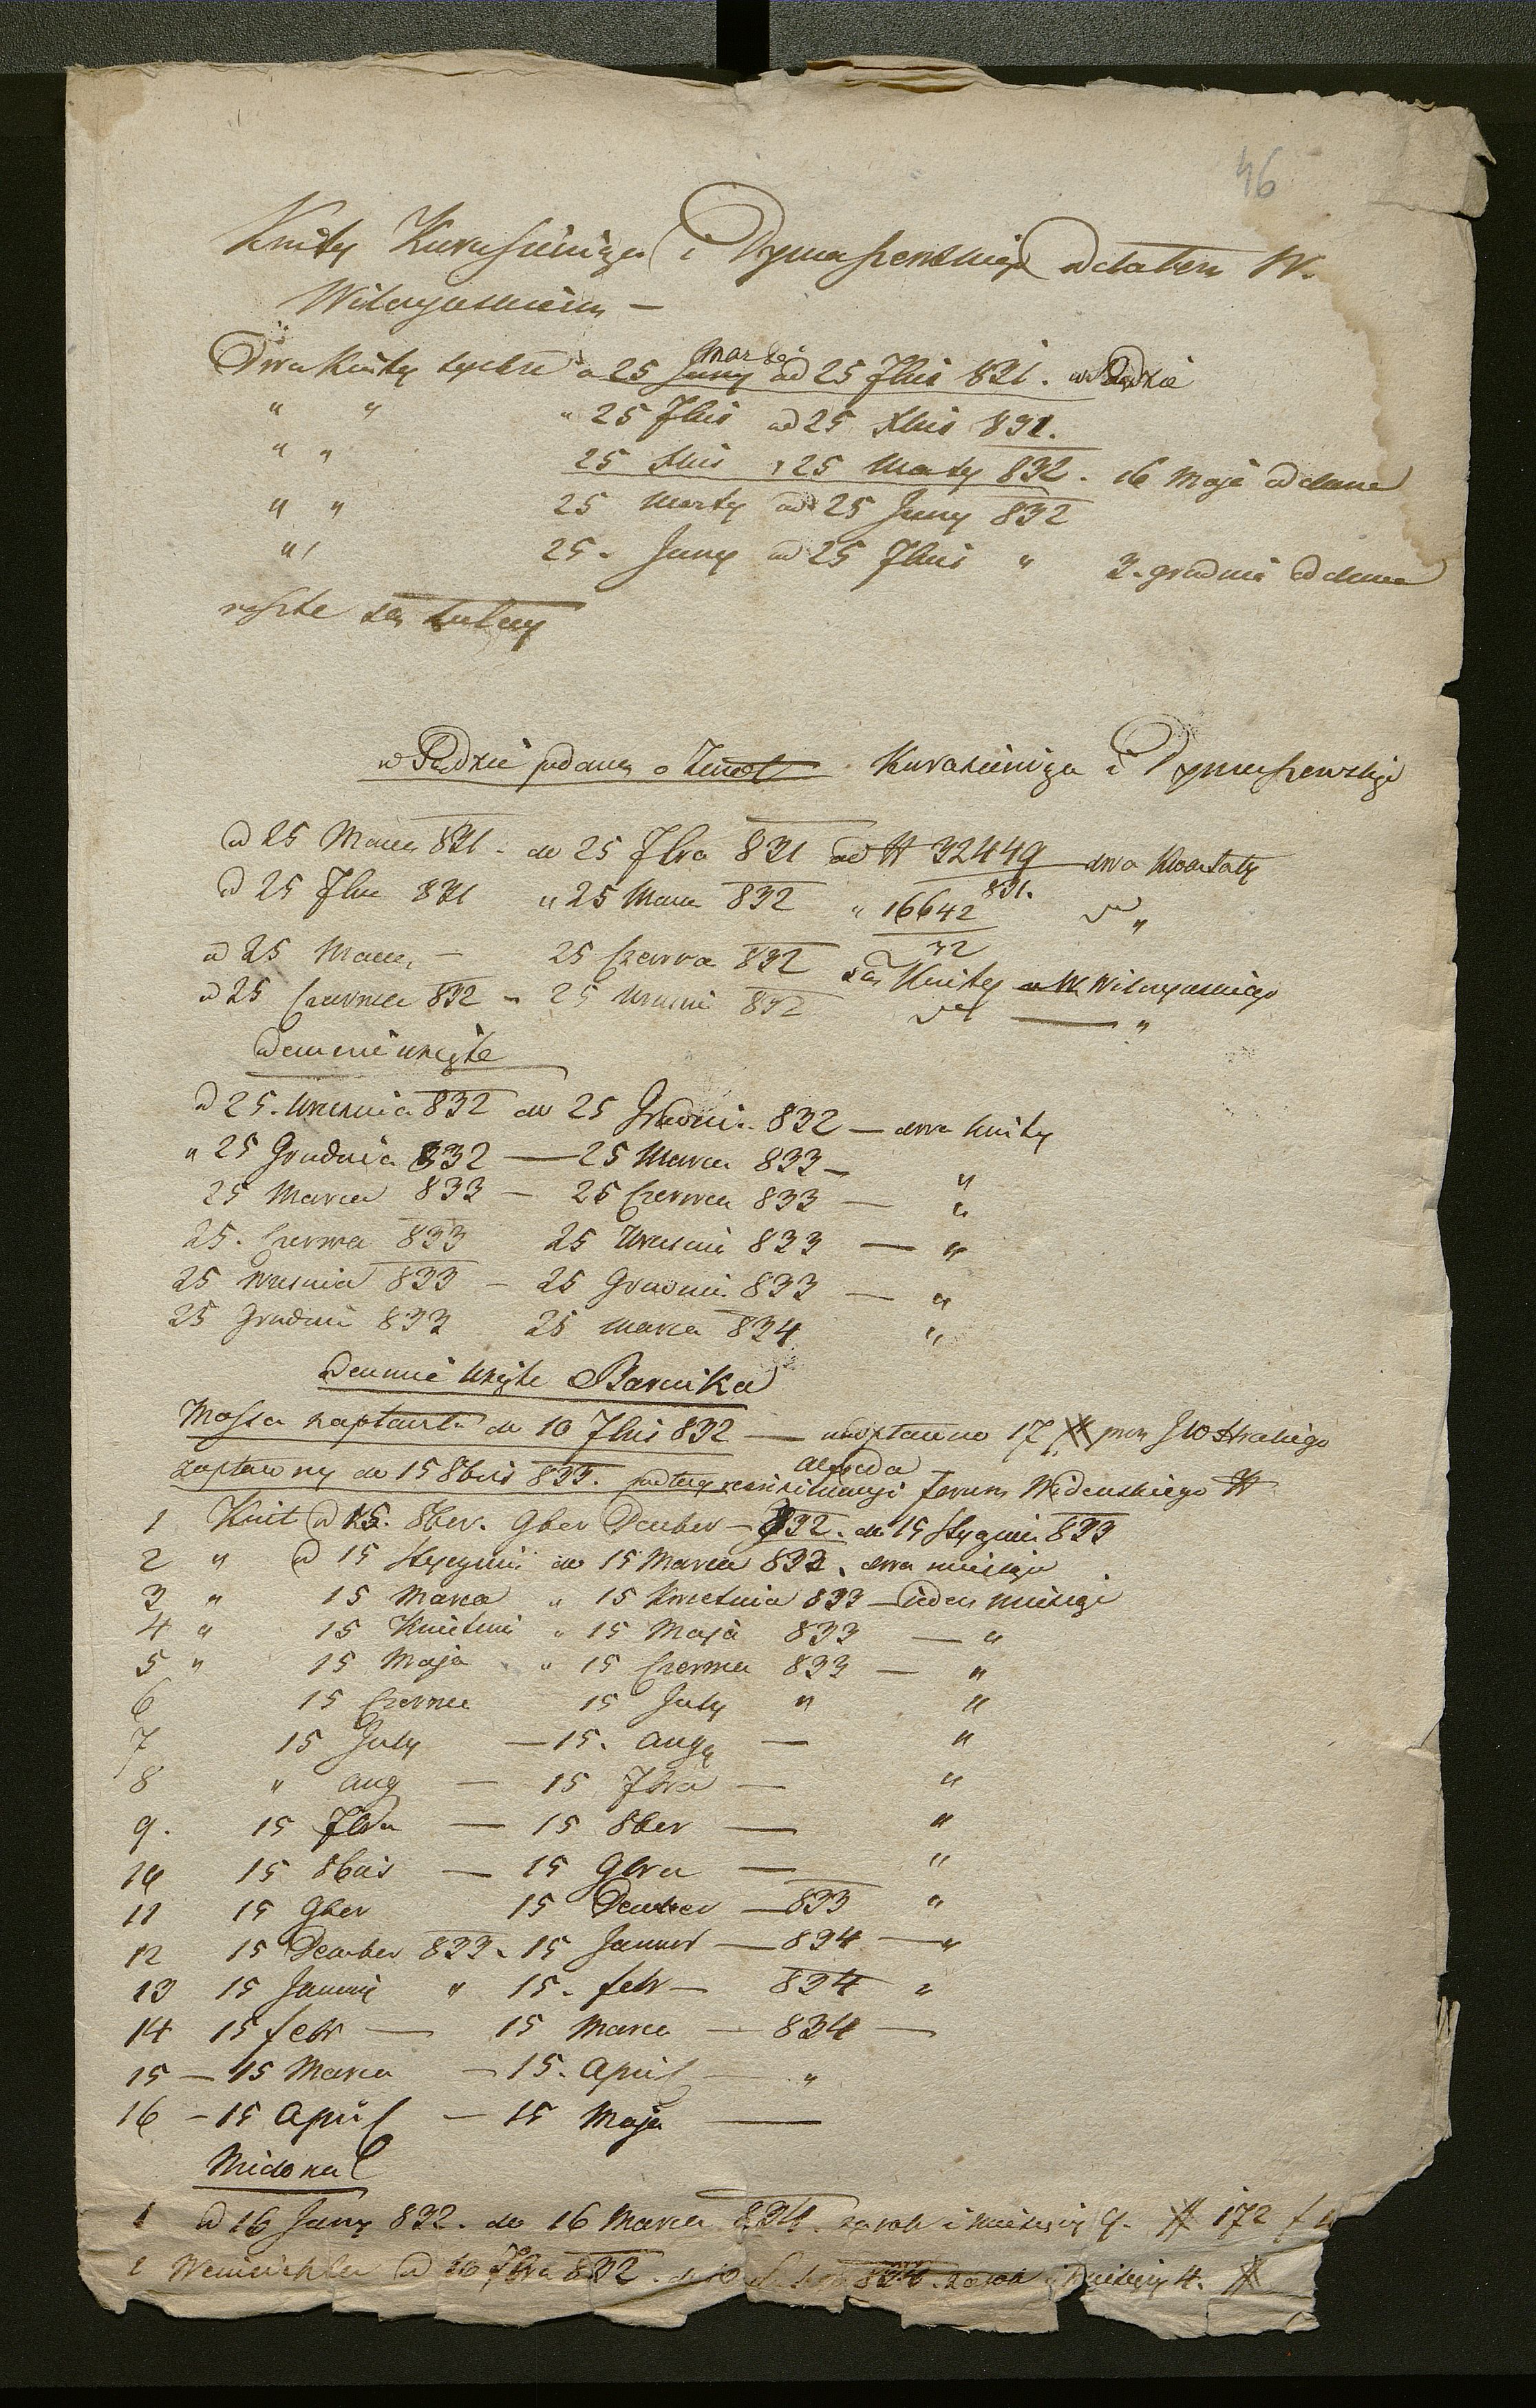 46
Kwity Kurasiewicza i Dymaszewskiego oddałem W.
Wilczyńskiem —
Dwa Kwity tychże a 25 Juny ad 25 7bris 831. w Sądzie
marty
" " " 25 7bris ad 25 Xbris 831.
" " 25 Xbris " 25 Marty 832. 16 Maja oddane
" " 25 Marty ad 25 Juny 832
" 25. Juny ad 25 7bris " 3. grudnia oddane
reszte są tutay
w Sądzie podane Kurasiewicza i Dymaszewskiego
od 25 Marca 831 - do 25 7bra 831 ad # 32449 dwa Kwartały
od 25 7bra 831 " 25 Marca 832 " 16642 831. "
od 25 Marca — 25 Czerwca 832 są Kwity u W. Wilczyńskiego
32
od 25 Czerwca 832 - 25 Wrzesnia 832 — "
odemnie wzięte
od 25. Wrzesnia 832 do 25 Grudnia 832 — dwa kwity
" 25 Grudnia 832 — 25 Marca 833 — "
25 Marca 833 — 25 Czerwca 833 — "
25. Czerwca 833 25 Wrzesnia 833 — "
25 Wrzesnia 833 — 25 Grudnia 833 — "
25 Grudnia 833 25 Marca 834 "
odemnie wzięte Barnika
Massa zapłaciła do 10 7bris 832 — 17 #
zapłacony do 15 8bris 833. forum Widenskiego #
1 Kwit od 15. 8ber. 9ber December — 832. do 15 Stycznia 833
2 " od 15 Stycznia do 15 Marca 833. dwa miesiące
3 " 15 Marca " 15 Kwietnia 833 — ieden miesiąc
4 " 15 Kwietnia " 15 Maja 833 — "
5 " 15 Maja " 15 Czerwca 833 — "
6 15 Czerwca 15 July " "
7 15 July — 15. aug — "
8 " aug — 15 7bra — "
9. 15 7bra — 15 8ber — "
10 15 8bris — 15 9bra — "
11 15 9ber 15 December — 833 "
12 15 December 833. 15 Januar — 834 — "
13 15 Januar " 15. febr — 834 "
14 15 febr — 15 Marca — 834 —
15 — 15 Marca — 15. April — "
16 — 15 April — 15 Maja —
1 od 16 Juny 832. do 16 Marca 834. za rok i miesięcy 9. # 172
2 od 10 7bra 832. do 10 834. za rok i miesięcy 4. #